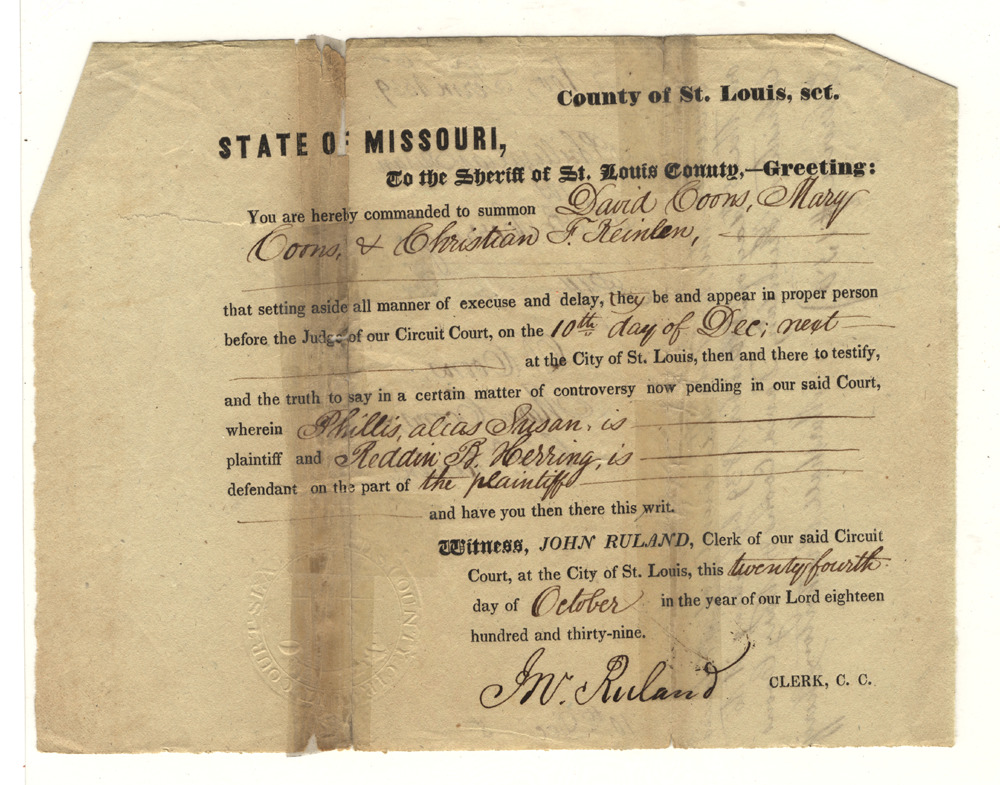 County of St. Louis, sct.
STATE OF MISSOURI,
To the Sheriff of St. Louis County,—Greeting:
You are hereby commanded to summon David Coons, Mary
Coons, & Christian F. Keinlen,
that setting aside all manner of execuse and delay, they be and appear in proper person
before the Judge of our Circuit Court, on the 10th day of Dec; next
at the City of St. Louis, then and there to testify,
and the truth to say in a certain matter of controversy now pending in our said Court,
wherein Phillis, alias Susan, is
plaintiff and Reddin B. Herring, is
defendant on the part of the plaintiff
and have you then there this writ.
Witness, JOHN RULAND, Clerk of our said Circuit
Court, at the City of St. Louis, this twenty fourth
day of October in the year of our Lord eighteen
hundred and thirty-nine.
Jno. Ruland CLERK, C. C.